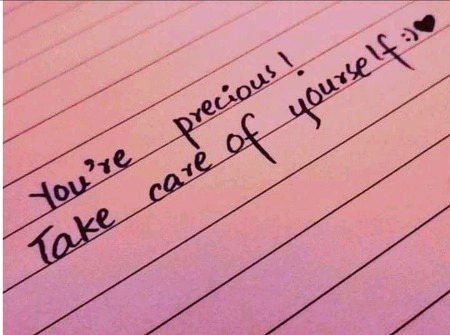 You're precious!
Take care of yourself:)♥